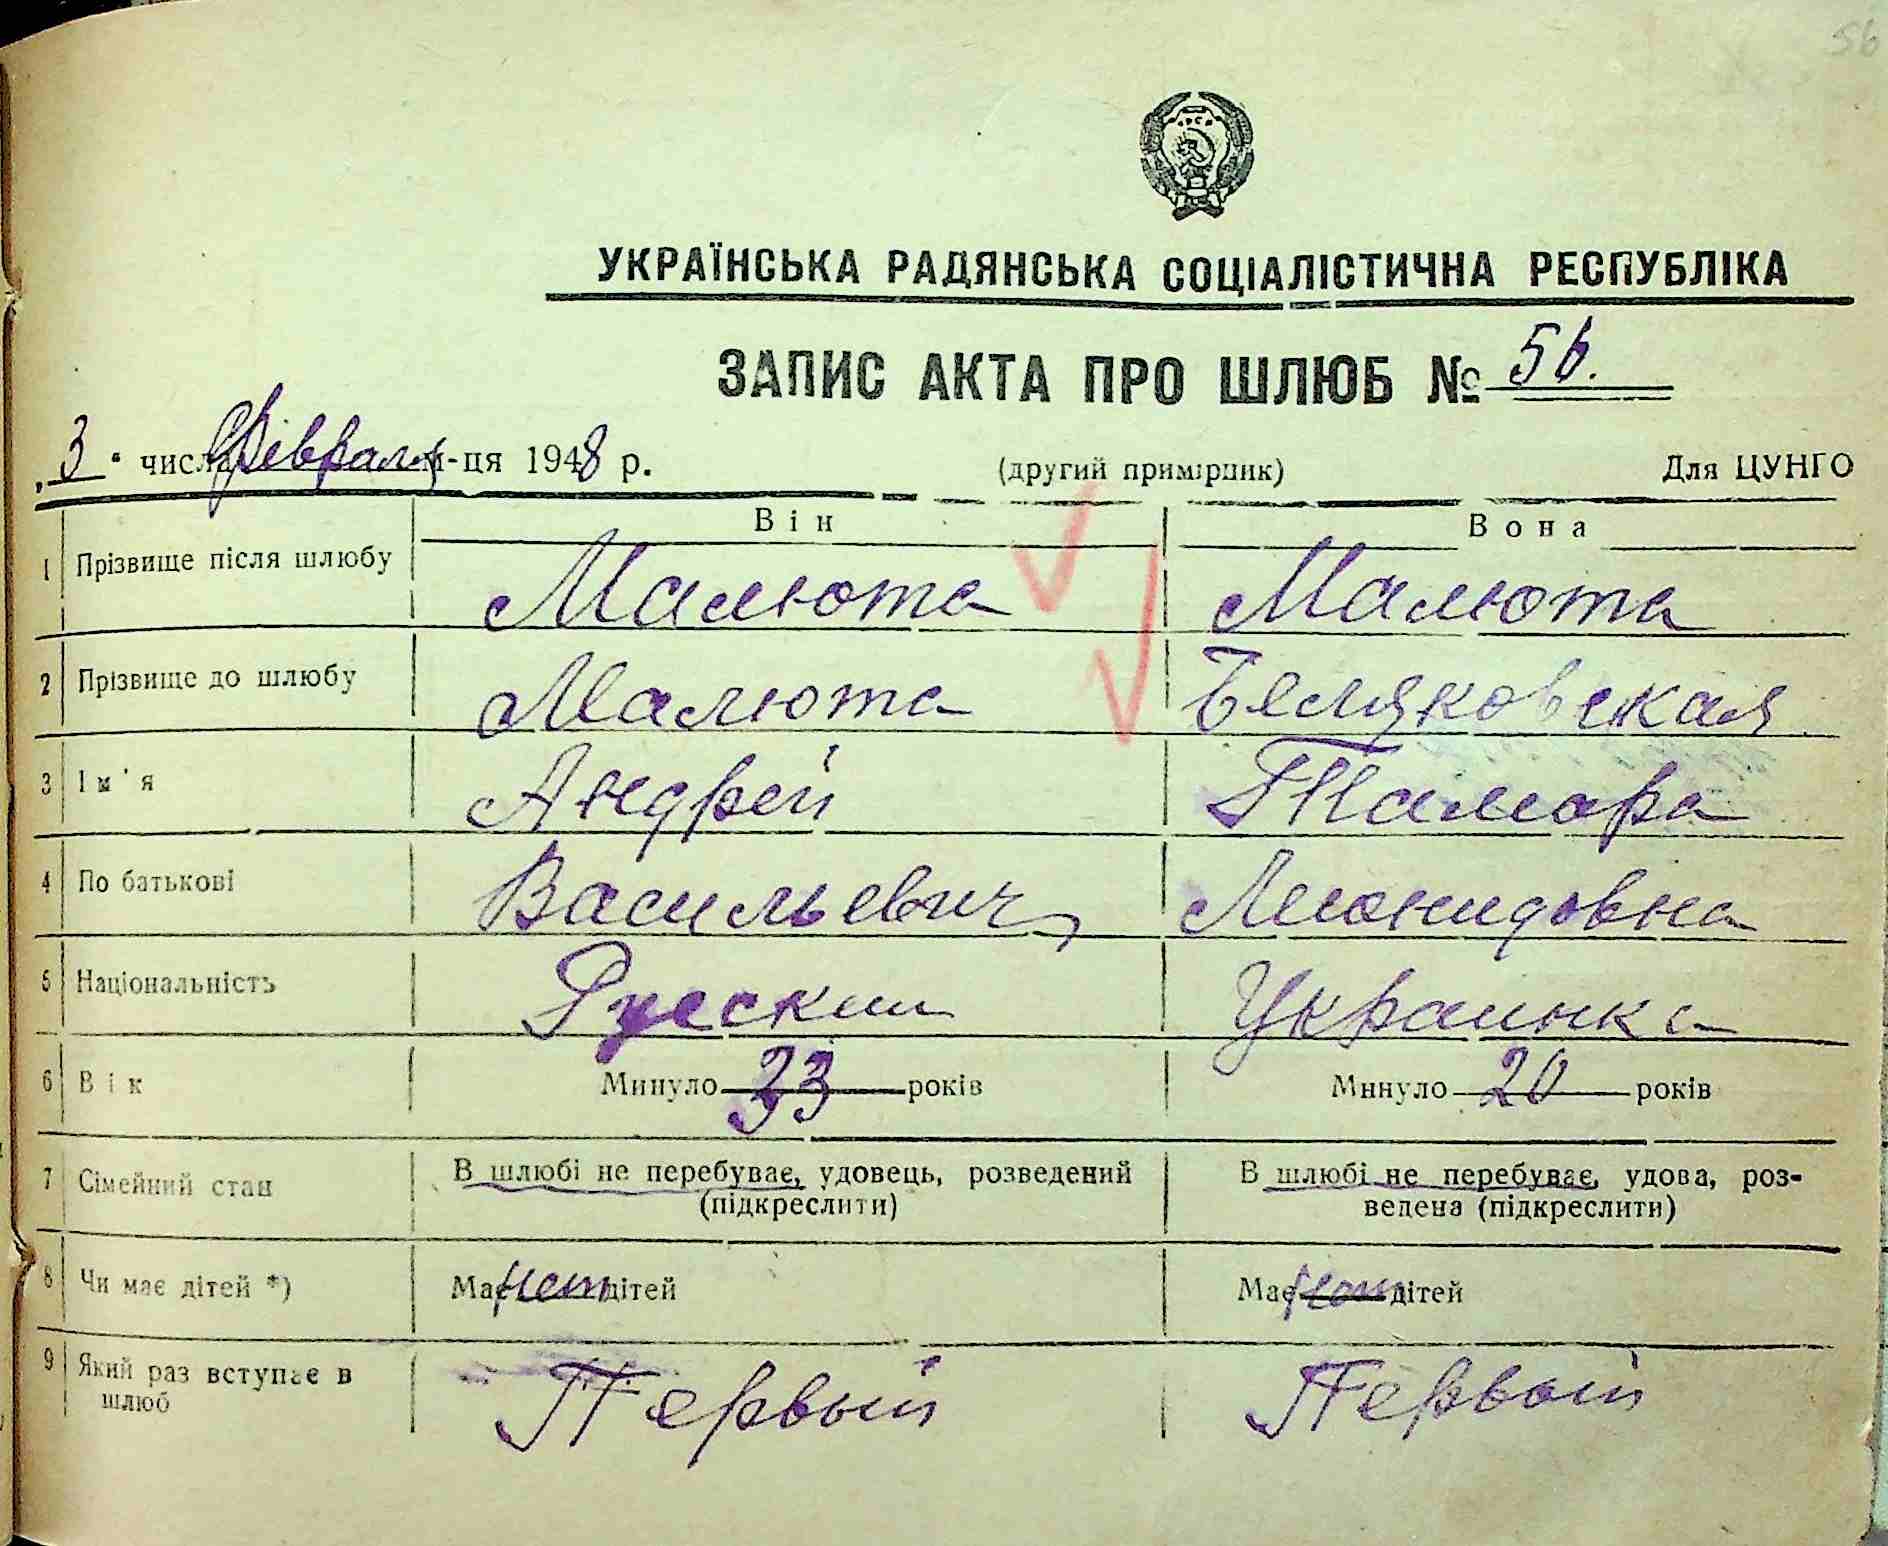 56
УКРАЇНСЬКА РАДЯНСЬКА СОЦІАЛІСТИЧНА РЕСПУБЛІКА
ЗАПИС АКТА ПРО ШЛЮБ № 56.
„3“ числа Февраля м-ця 1948 р. (другий примірник) Для ЦУНГО
Він Вона
1 Прізвище після шлюбу Малюта Малюта
2 Прізвище до шлюбу Малюта Беляковская
3 Ім'я Андрей Тамара
4 По батькові Васильевич Леонидовна
5 Національність Русский Украинка
6 Вік Минуло 33 років Минуло 20 років
7 Сімейний стан В шлюбі не перебуває, удовець, розведений В шлюбі не перебуває, удова, роз-
(підкреслити) ведена (підкреслити)
8 Чи має дітей *) Має нет дітей Має нет дітей
9 Який раз вступає в Первый Первый
шлюб